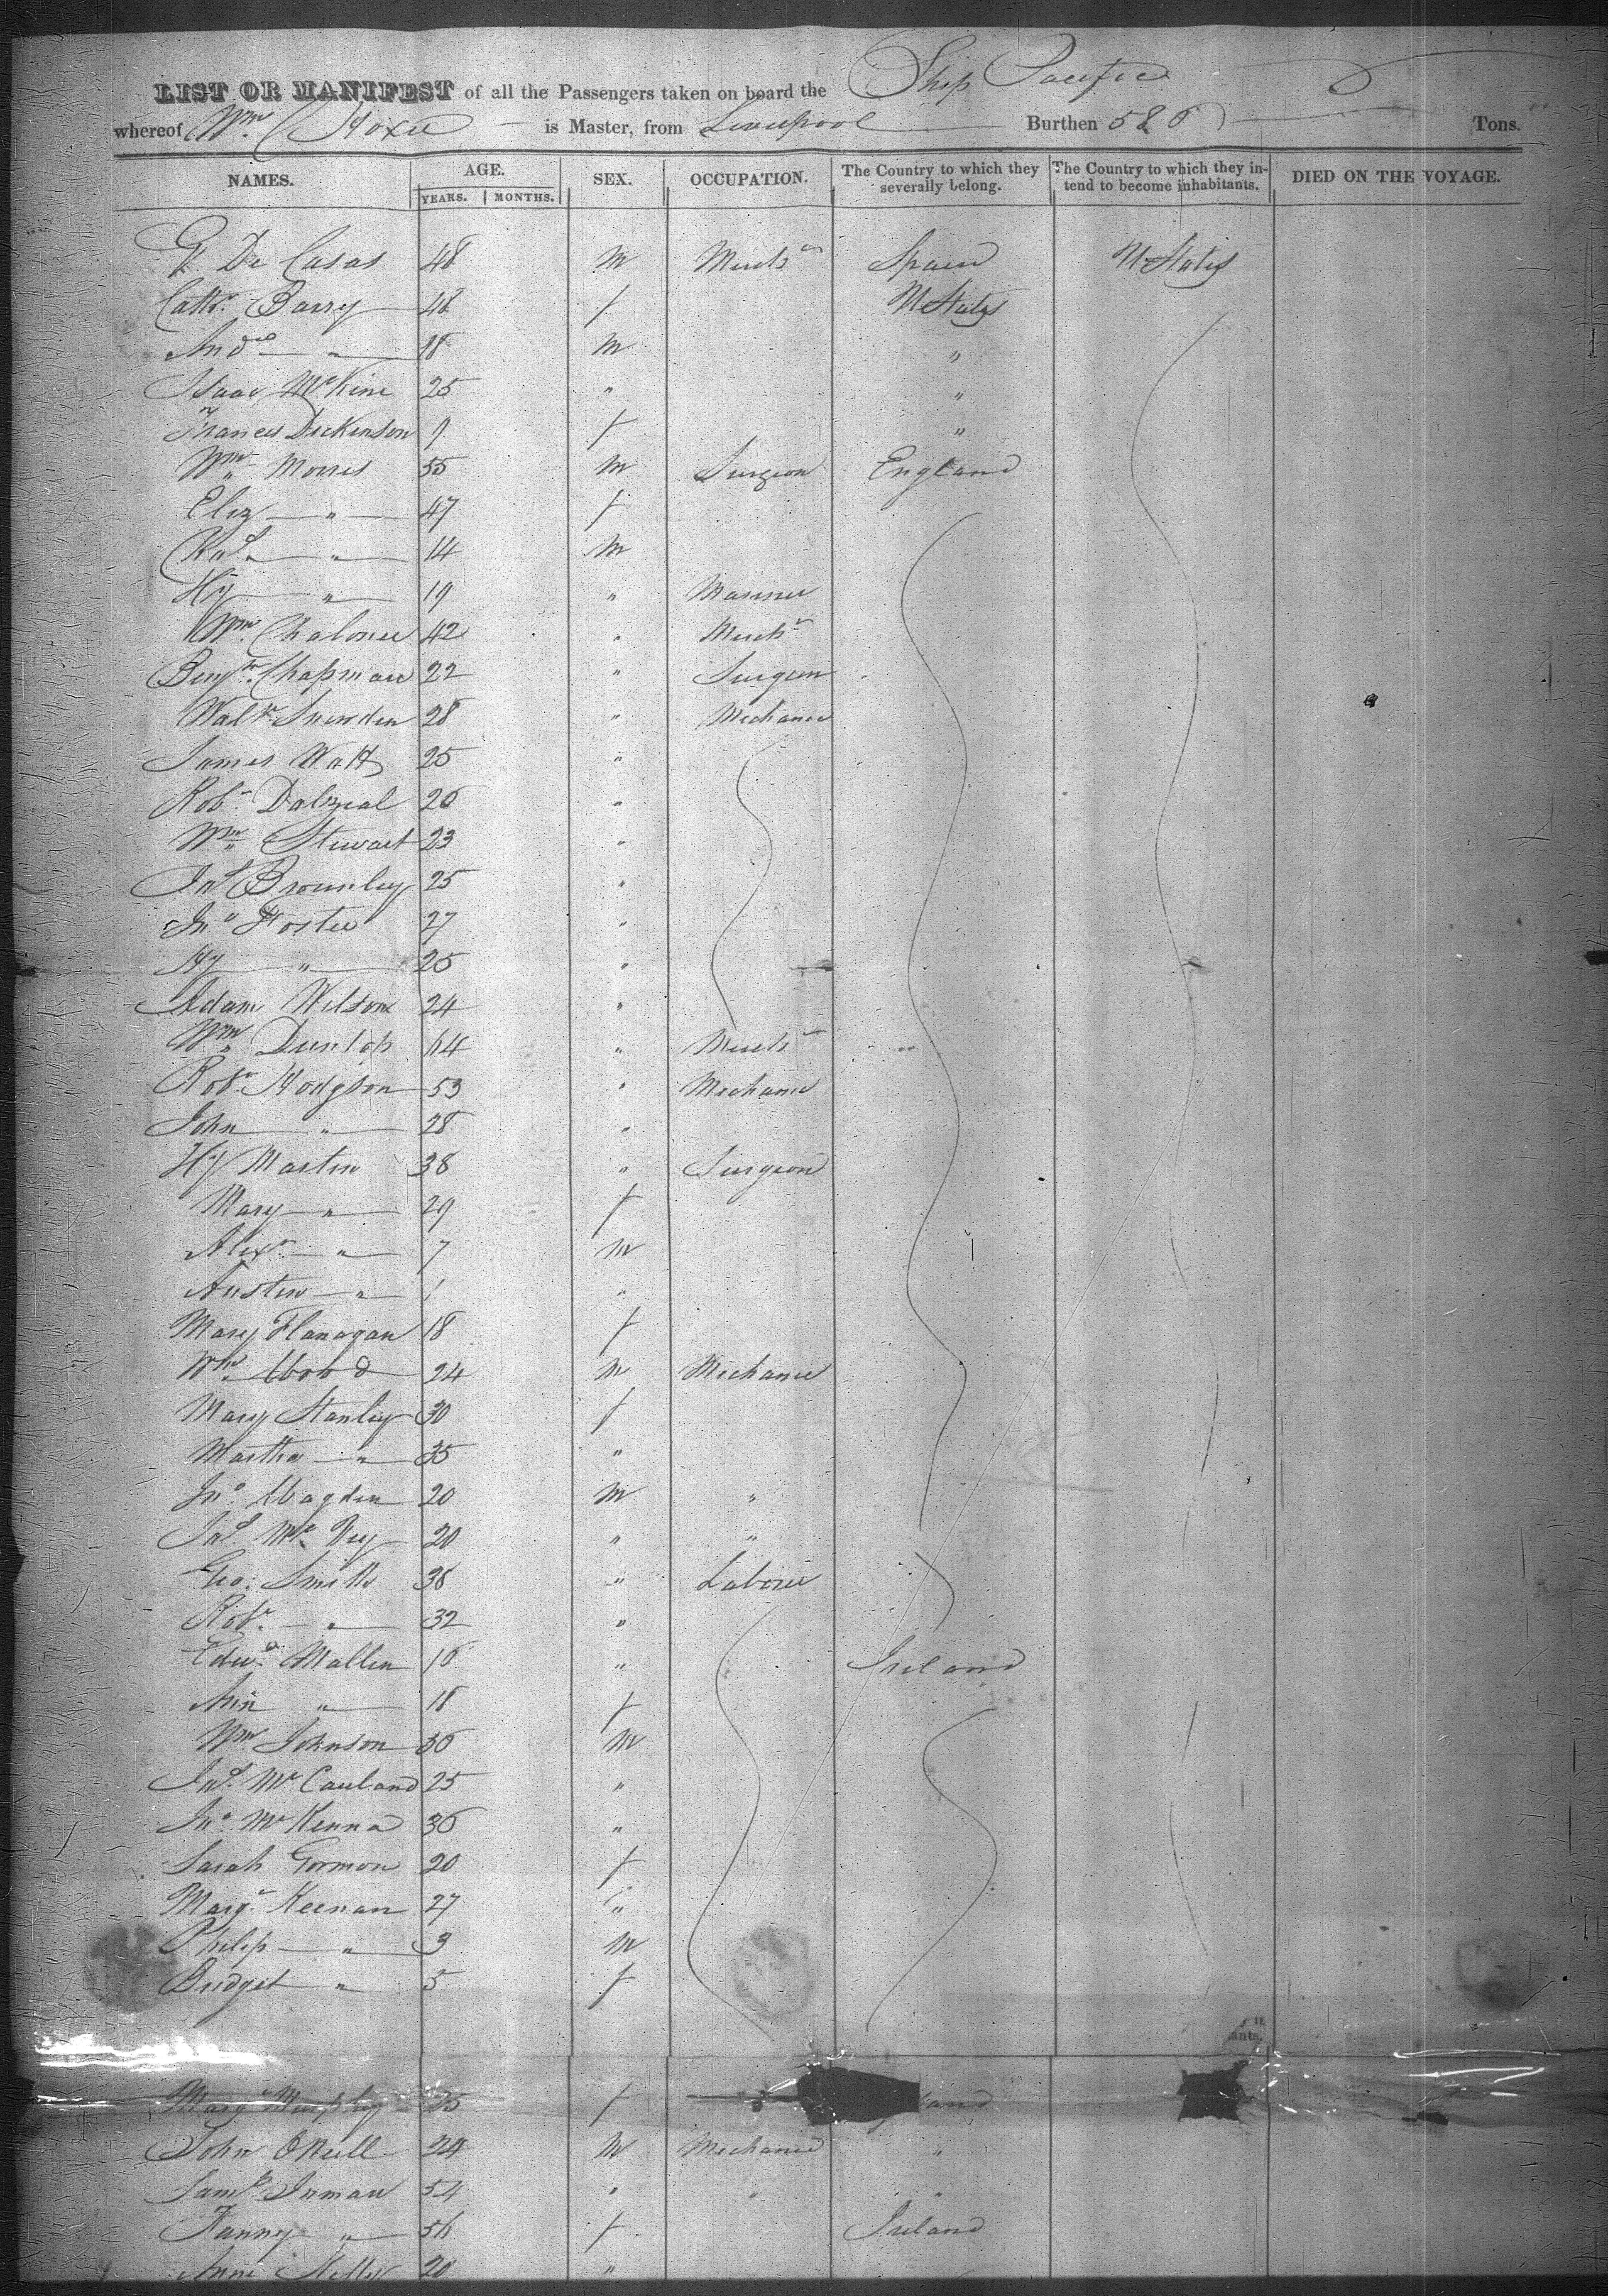 LIST OR MANIFEST of all the Passengers taken on board the Ship Pacific
whereof Wm C Hoxie is Master, from Liverpool Burthen 586 Tons.
NAMES. AGE. SEX. OCCUPATION. The Country to which they severally belong. The Country to which they intend to become inhabitants. DIED ON THE VOYAGE.
YEARS. MONTHS.
De Casas 48 m Mercht Spain U States
Cathe. Barry 48 f U States
" 18 m "
Isaac McKine 25 " "
Frances Dickinson 9 f "
Wm Morris 55 m Surgeon England
Eliz " 47 f
Rd " 14 m
Hy " 19 " Mariner
Wm Chaloner 42 " Mercht
Benjn. Chapman 22 " Surgeon
Walr. Snowden 28 " Mechanic
James Watt 25 "
Robt. Dalzeal 26 "
Wm Stewart 23 "
Jas Brownley 25 "
Jno Foster 27 "
Hy " 25 "
Adam Wilson 24 "
Wm Dunlop 64 " Mercht
Robt. Hodgson 53 " Mechanic
John " 28 "
Hy Martin 38 " Surgeon
Mary " 29 f
Alexr " 7 m
Austin " 1 "
Mary Flanagan 18 f
Wm Wood 24 m Mechanic
Mary Stanley 30 f
Martha " 35 "
Jno. 20 m "
Jas. 20 " "
Geo: Smith 36 " Laborer
Robt. " 32 "
Edwd. Mallen 16 " Ireland
Ann " 18 f
Wm Johnson 36 m
Jas. Mc Causland 25 "
Jno. McKenna 36 "
Sarah Gormon 20 f
Margt Keenan 27 "
Philip " 3 m
Bridget " 5 f
Mary Murphy 25 f
John ONeill 24 m Mechanic "
Saml. Inman 54 " " "
Fanny " 56 f Ireland
Anne Kelly 20 "